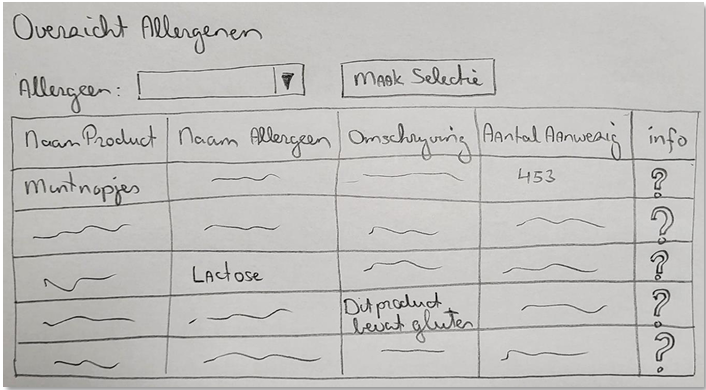 Overzicht Allergenen
Allergeen:
Maak Selectie
Naam Product Naam Allergeen Omschrijving Aantal Aanwezig info
Mintnopjes 453 ?
?
Lactose ?
Dit product
bevat gluten ?
?